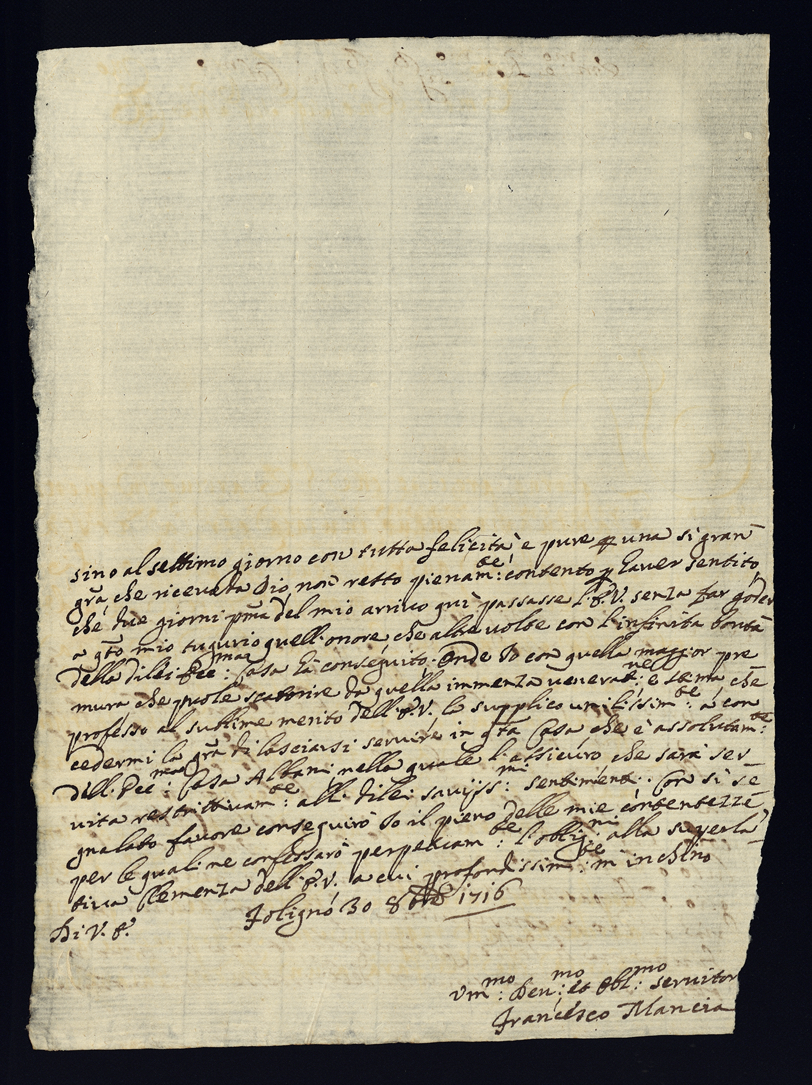 sino al settimo giorno con tutta felicità e pure p una si gran
gra che ricevuta Dio non resto pienam:te contento p haver sentito
che due giorni pma del mio arrivo qui passasse l'E.V. senza far goder
a qto mio tugurio quell'onore che altre volte con l'infinita bontà
della di lei Ecc:ma Casa hà conseguito. Onde Io con quella maggior pre
mura che puole scatorire da quella immenza venerat:ne e stima che
professo al sublime merito dell'E.V. la supplico umilissim:te à con
cedermi la gra di lasciarsi servire in qta Casa che è assolutam:te
dell'Ecc:ma Casa Albani nella quale l'assicuro che sarà ser-
vita restrittivam:te alli di lei savijss:mi sentimenti. Con si se
gnalato favore conseguirò Io il pieno delle mie contentezze
per le quali ne confessarò perpetuam:te l'oblig:ni alla superla
tiva Clemenza dell'E.V. a cui profondissim:te m'inchino
Di V.E.
Foligno 30 8bre 1716
Vm:mo Dev:mo et Obl:mo servitor
Francesco Mancia